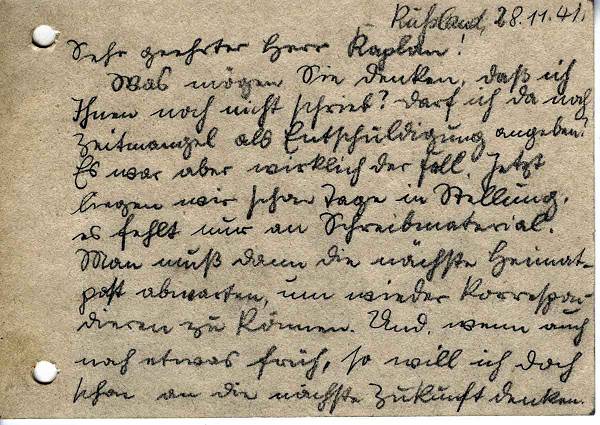 Rußland, 28.11.41.
Sehr geehrter Herr Kaplan!
Was mögen Sie denken, daß ich
Ihnen noch nicht schrieb? Darf ich da noch
Zeitmangel als Entschuldigung angeben?
Es war aber wirklich der Fall. Jetzt
liegen wir schon Tage in Stellung,
es fehlt nur an Schreibmaterial.
Man muß dann die nächste Heimat-
post abwarten, um wieder korrespon-
dieren zu können. Und, wenn auch
noch etwas früh, so will ich doch
schon an die nächste Zukunft denken.